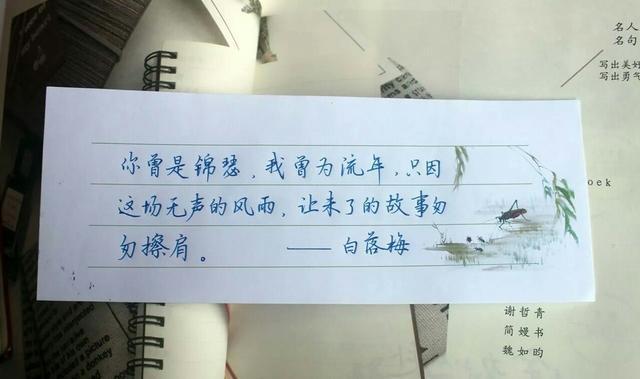 你曾是锦瑟，我曾为流年，只因
这场无声的风雨，让来了的故事匆
匆擦肩。 ——白落梅
名人
名句
写出美好
写出勇气
oek
谢哲青
简嫚书
魏如昀